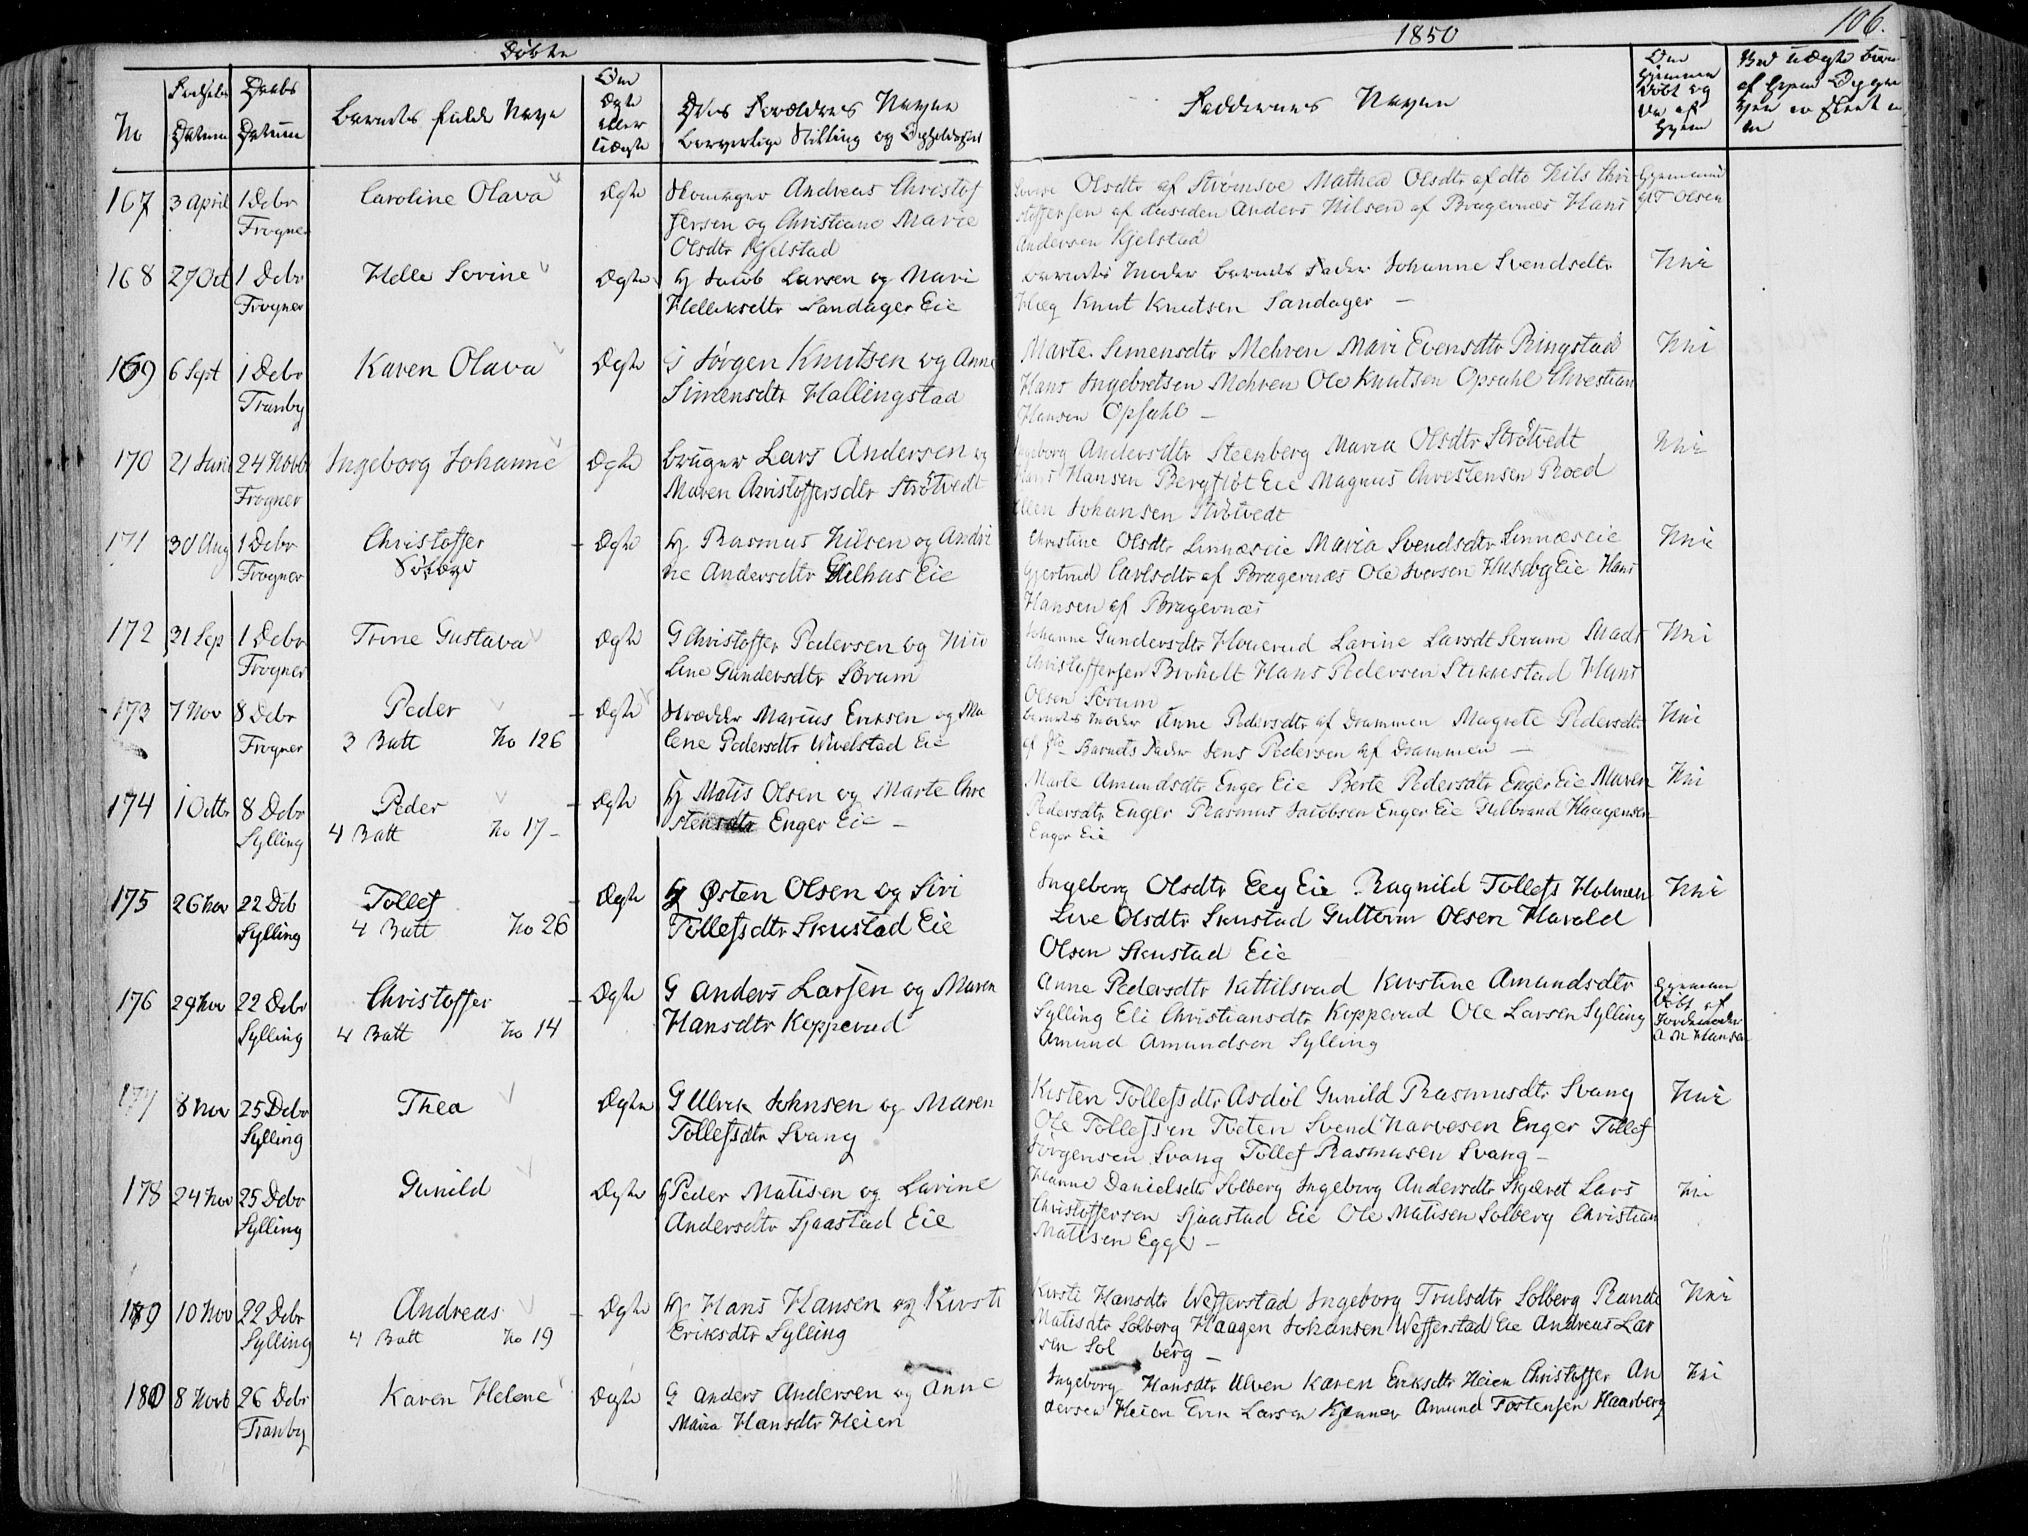 Døbte
1850
106.
No
Fødsels Datum
Daabs Datum
Barnets fulde Navn
Om Ægte eller Uægte
Forældres Navne
borgerlige Stilling og Opholdssted
Faddernes Navne
Om hjemmedøbt og
167 3 April 1 Debr Frogner
Caroline Olava
Ægte
Skomager Andreas Christof
fersen og Christiane Marie
Olsdtr Kjelstad
Olsdtr af Strømsøe Mathea Olsdtr af dto Nils Chri
stoffersen af Anders Nilsen af Bragernæs Hans
Andersen Kjelstad
168 27 Oct 1 Debr Frogner
Helle Sovine
Ægte
Hj Jacob Larsen og Mari
Helliksdtr Landager Eie
Barnets Moder Barnets Fader Johanne Svendsdtr
Hæg Knut Knutsen Landager —
Nei
169 6 Sept 1 Debr Tranby
Karen Olava
Ægte
G Jørgen Knutsen og Anne
Simensdtr Hallingstad
Marte Simensdtr Mehren Mari Evensdtr Ringstad
Hans Ingebretsen Mehren Ole Knutsen Opsahl Christian
Hansen Opsahl —
Nei
170 21 Juni 24 Novbr Frogner
Ingeborg Johanne
Ægte
bruger Lars Andersen og
Maren Christoffersdtr Strøtvedt
Ingeborg Andersdtr Steenberg Maria Olsdtr Strøtvedt
Hans Hansen Bergfløt Eie Magnus Christensen Roed
Ellen Johansen Strøtvedt
Nei
171 30 Aug 1 Debr Frogner
Christoffer
Ægte
Hj. Rasmus Nilsen og Andri
ne Andersdtr Gilhus Eie
Christine Olsdtr Linnæseie Maria Svendsdtr Linnæseie
Gjertrud Carlsdtr af Bragernæs Ole Iversen Husebg Eie Hans
Hansen af Bragernæs
Nei
172 31 Sep 1 Debr Frogner
Trine Gustava
Ægte
G Christoffer Pedersen og Nico
line Gundersdtr Sørum
Johanne Gundersdtr Houerud Larine Larsdt Sørum Mads
Christoffersen Birkelt Hans Pedersen Stikkestad Hans
Olsen Sørum
Nei
173 7 Nov 8 Debr Frogner
Peder
3 Batt No 126
Ægte
Skrædder Marius Eriksen og Ma
lene Pedersdtr Wivelstad Eie
Barnets Moder Anne Pedersdtr af Drammen Magrete Pedersdtr
af Do Barnets Fader Jens Pedersen af Drammen —
Nei
174 1 Octbr 8 Debr Sylling
Peder
4 Batt No 17 -
Ægte
Hj Matis Olsen og Marte Chri
stensdtr Enger Eie —
Marte Amundsdtr Enger Eie Berte Pedersdtr Enger Eie Maren
Pedersdtr Enger Rasmus Jacobsen Enger Eie Gulbrand Haagensen
Enger Eie
Nei
175 26 Nov 22 Deb Sylling
Tollef
4 Batt No 26
Ægte
Hj Østen Olsen og Siri
Tollefsdtr Skustad Eie
Ingeborg Olsdtr Eeg Eie Ragnild Tollefs Holmen
Live Olsdtr Skustad Gulterm Olsen Harald
Olsen Skustad Eie
Nei
176 29 Nov 22 Debr Sylling
Christoffer
4 Batt No 14
Ægte
G Anders Larsen og Maren
Hansdtr Kopperud
Anne Pedersdtr Kittilsrud Kirstine Amundsdtr
Sylling Eli Christiansdtr Kopperud Ole Larsen Sylling
Amund Amundsen Sylling
Hjemme
døbt af
Jordemoder
A M Hansen
177 8 Nov 25 Debr Sylling
Thea
Ægte
G Ulrik Johnsen og Maren
Tollefsdtr Svang
Kisten Tollefsdtr Asdøl Gunild Rasmusdtr Svang
Ole Tollefsen Tveten Svend Narvesen Enger Tollef
Jørgensen Svang Tollef Rasmusen Svang —
Nei
178 24 Nov 25 Debr Sylling
Gunild
Ægte
Hj Peder Matisen og Larine
Andersdtr Sjaastad Eie
Hanne Danielsdtr Solberg Ingeborg Andersdtr Skjæret Lars
Christoffersen Sjaastad Eie Ole Matisen Solberg Christian
Matisen Egge —
Nei
179 10 Nov 22 Debr Sylling
Andreas
4 Batt No 19
Ægte
Hj. Hans Hansen og Kirsti
Eriksdtr Sylling
Kirsti Hansdtr Wefferstad Ingeborg Trulsdtr Solberg Randi
Matisdtr Solberg Haagen Johansen Wefferstad Eie Andreas Lar
sen Sol berg —
Nei
180 8 Novb 26 Debr Tranby
Karen Helene
Ægte
G Anders Andersen og Anne
Maria Hansdtr Heien
Ingeborg Hansdtr Ulven Karen Eriksdtr Heien Christoffer An
dersen Heien Even Larsen Kjenner Amund Tostensen Haarberg
Nei